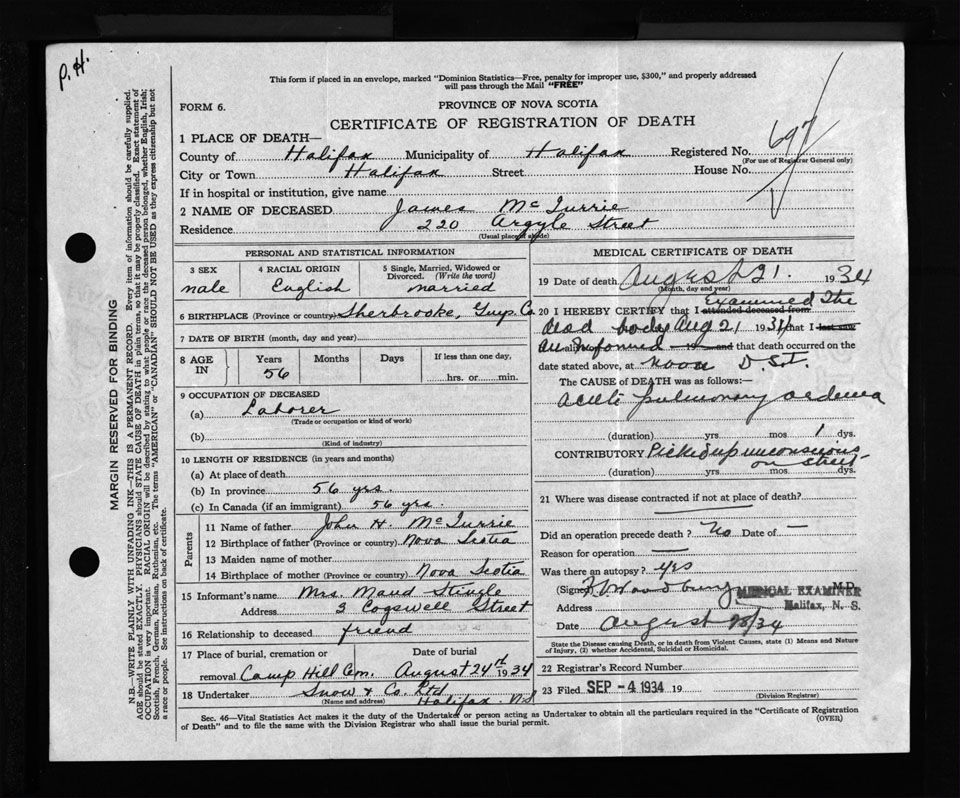 P. H.
This form if placed in an envelope, marked "Dominion Statistics—Free, penalty for improper use, $300," and properly addressed
will pass through the Mail "FREE"
FORM 6.
PROVINCE OF NOVA SCOTIA
CERTIFICATE OF REGISTRATION OF DEATH
1 PLACE OF DEATH—
County of Halifax Municipality of Halifax Registered No. 697
(For use of Registrar General only)
City or Town Halifax Street House No.
If in hospital or institution, give name
2 NAME OF DECEASED James McTurrie
Residence 220 Argyle Street
(Usual place of abode)
PERSONAL AND STATISTICAL INFORMATION
3 SEX 4 RACIAL ORIGIN 5 Single, Married, Widowed or Divorced. (Write the word)
male English married
6 BIRTHPLACE (Province or country) Sherbrooke, Guys. Co.
7 DATE OF BIRTH (month, day and year)
8 AGE IN Years Months Days If less than one day,
56 hrs. or min.
9 OCCUPATION OF DECEASED
(a) Laborer
(Trade or occupation or kind of work)
(b)
(Kind of industry)
10 LENGTH OF RESIDENCE (in years and months)
(a) At place of death
(b) In province 56 yrs.
(c) In Canada (if an immigrant) 56 yrs.
Parents
11 Name of father John H. McTurrie
12 Birthplace of father (Province or country) Nova Scotia
13 Maiden name of mother
14 Birthplace of mother (Province or country) Nova Scotia
15 Informant's name Mrs. Maud
Address 3 Cogswell Street
16 Relationship to deceased friend
17 Place of burial, cremation or removal Date of burial
Camp Hill Cem. August 24th 1934
18 Undertaker Snow & Co. Ltd
(Name and address) Halifax N.S
MEDICAL CERTIFICATE OF DEATH
19 Date of death August 21. 1934
(Month, day and year)
20 I HEREBY CERTIFY that I attended deceased from Examined the
dead body Aug 21 1934 that I last saw
am informed alive 19 and that death occurred on the
date stated above, at Noon D.S.T.
The CAUSE OF DEATH was as follows:—
acute pulmonary oedema
(duration) yrs. mos 1 dys.
CONTRIBUTORY Picked up unconsious
on street
(duration) yrs. mos dys.
21 Where was disease contracted if not at place of death?
Did an operation precede death? No Date of —
Reason for operation —
Was there an autopsy? yes
(Signed) M.D.
MEDICAL EXAMINER
Address Halifax, N. S.
Date August /34
State the Disease causing Death, or in death from Violent Causes, state (1) Means and Nature
of Injury, (2) whether Accidental, Suicidal or Homicidal.
22 Registrar's Record Number
23 Filed SEP -4 1934 19
(Division Registrar)
Sec. 46—Vital Statistics Act makes it the duty of the Undertaker or person acting as Undertaker to obtain all the particulars required in the "Certificate of Registration
of Death" and to file the same with the Division Registrar who shall issue the burial permit.
(OVER)
MARGIN RESERVED FOR BINDING
N.B.—WRITE PLAINLY WITH UNFADING INK—THIS IS A PERMANENT RECORD. Every item of information should be carefully supplied.
AGE should be stated EXACTLY. PHYSICIANS should STATE CAUSE OF DEATH in plain terms, so that it may be properly classified. Exact statement of
OCCUPATION is very important. RACIAL ORIGIN will be described by stating to what people or race the deceased person belonged, whether English, Irish;
Scottish, French, German, Russian, Ruthenian, etc. The terms "AMERICAN" or "CANADIAN" SHOULD NOT BE USED as they express citizenship but not
a race or people. See instructions on back of certificate.